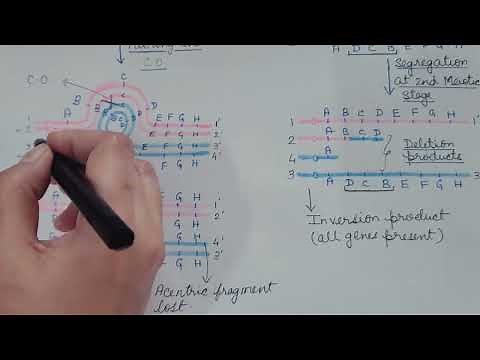 Pairing and
C.O
C-O
C
B
D
A
E F G H 1'
1
2
2'
E F G H 3'
F G H 4'
G H 2'
G H 4'
G H
Acentric fragment
lost.
D C B E F G H
Segregation
at 2nd Meiotic
Stage
1 A B C D E F G H 1'
2 A B C D
Deletion
products
4 A
3 A D C B E F G H 3'
Inversion product
(all genes present)